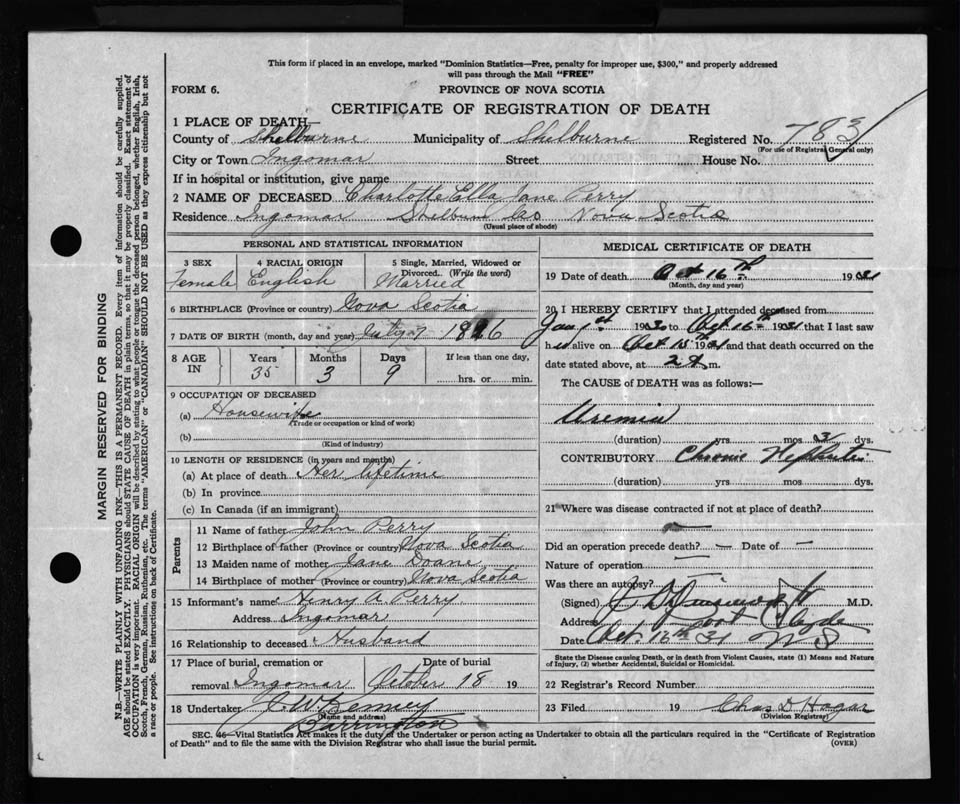 This form if placed in an envelope, marked "Dominion Statistics—Free, penalty for improper use, $300," and properly addressed
will pass through the Mail "FREE"
FORM 6.
PROVINCE OF NOVA SCOTIA
CERTIFICATE OF REGISTRATION OF DEATH
1 PLACE OF DEATH—
County of Shelburne Municipality of Shelburne Registered No. 783
(For use of Registrar General only)
City or Town Ingomar Street House No.
If in hospital or institution, give name
2 NAME OF DECEASED Charlotte Ella Jane Perry
Residence Ingomar Shelburn Co Nova Scotia
(Usual place of abode)
PERSONAL AND STATISTICAL INFORMATION
3 SEX 4 RACIAL ORIGIN 5 Single, Married, Widowed or
Divorced. (Write the word)
Female English Married
6 BIRTHPLACE (Province or country) Nova Scotia
7 DATE OF BIRTH (month, day and year) July 7
8 AGE IN Years Months Days If less than one day,
35 3 9 hrs. or min.
9 OCCUPATION OF DECEASED
(a) Housewife
(Trade or occupation or kind of work)
(b)
(Kind of industry)
10 LENGTH OF RESIDENCE (in years and months)
(a) At place of death Her lifetime
(b) In province
(c) In Canada (if an immigrant)
Parents
11 Name of father John Perry
12 Birthplace of father (Province or country) Nova Scotia
13 Maiden name of mother Jane Doane
14 Birthplace of mother (Province or country) Nova Scotia
15 Informant's name Henry A. Perry
Address Ingomar
16 Relationship to deceased Husband
17 Place of burial, cremation or Date of burial
removal Ingomar October 18 19
18 Undertaker J. W.
(Name and address)
Barrington
MEDICAL CERTIFICATE OF DEATH
19 Date of death Oct 16th 1931
(Month, day and year)
20 I HEREBY CERTIFY that I attended deceased from
Jany 1st 1930 to Oct 16th 1931 that I last saw
h alive on Oct 15 1931 and that death occurred on the
date stated above, at 2 A m.
The CAUSE of DEATH was as follows:—
Uremia
(duration) yrs mos 3 dys.
CONTRIBUTORY Chronic Nephritis
(duration) yrs mos dys.
21 Where was disease contracted if not at place of death?
Did an operation precede death? — Date of —
Nature of operation —
Was there an autopsy? —
(Signed) M.D.
Address Port Clyde
Date Oct. 16th 31 N S
State the Disease causing Death, or in death from Violent Causes, state (1) Means and Nature
of Injury, (2) whether Accidental, Suicidal or Homicidal.
22 Registrar's Record Number
23 Filed 19 Chas D
(Division Registrar)
SEC. 46—Vital Statistics Act makes it the duty of the Undertaker or person acting as Undertaker to obtain all the particulars required in the "Certificate of Registration
of Death" and to file the same with the Division Registrar who shall issue the burial permit.
(OVER)
MARGIN RESERVED FOR BINDING
N.B.—WRITE PLAINLY WITH UNFADING INK—THIS IS A PERMANENT RECORD. Every item of information should be carefully supplied.
AGE should be stated EXACTLY. PHYSICIANS should STATE CAUSE OF DEATH in plain terms, so that it may be properly classified. Exact statement of
OCCUPATION is very important. RACIAL ORIGIN will be described by stating to what people or tongue the deceased person belonged, whether English, Irish,
Scotch, French, German, Russian, Ruthenian, etc. The terms "AMERICAN" or "CANADIAN" SHOULD NOT BE USED as they express citizenship but not
a race or people. See instructions on back of Certificate.